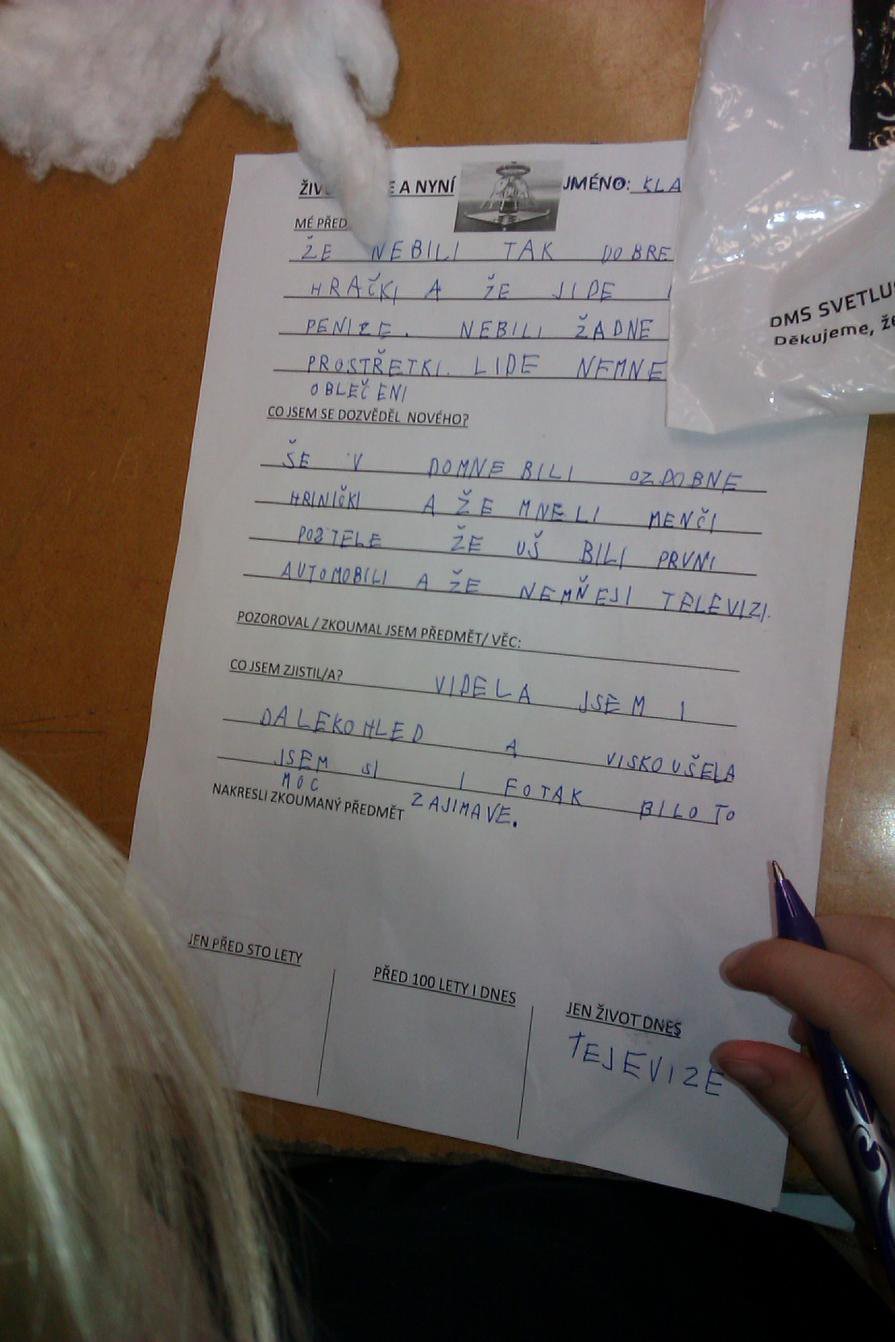 E A NYNÍ JMÉNO: KLA
MÉ PŘED
ŽE NEBILI TAK DOBRE
HRAČKI A ŽE JIDE
PENIZE. NEBILI ŽADNE
PROSTŘETKI. LIDE NEMNE
OBLEČENI
CO JSEM SE DOZVĚDĚL NOVÉHO?
ŠE V DOMNE BILI OZDOBNE
HRNIČKI A ŽE MNELI MENČI
POSTELE ŽE UŠ BILI PRVNI
AUTOMOBILI A ŽE NEMŇEJI TELEVIZI.
POZOROVAL / ZKOUMAL JSEM PŘEDMĚT/ VĚC:
CO JSEM ZJISTIL/A? VIDELA JSEM I
DALEKOHLED A VISKOUŠELA
JSEM SI I FOTAK BILO TO
MOC ZAJIMAVE.
NAKRESLI ZKOUMANÝ PŘEDMĚT
JEN PŘED STO LETY
PŘED 100 LETY I DNES
JEN ŽIVOT DNES
TEJEVIZE
DMS SVETLUS
Děkujeme, že